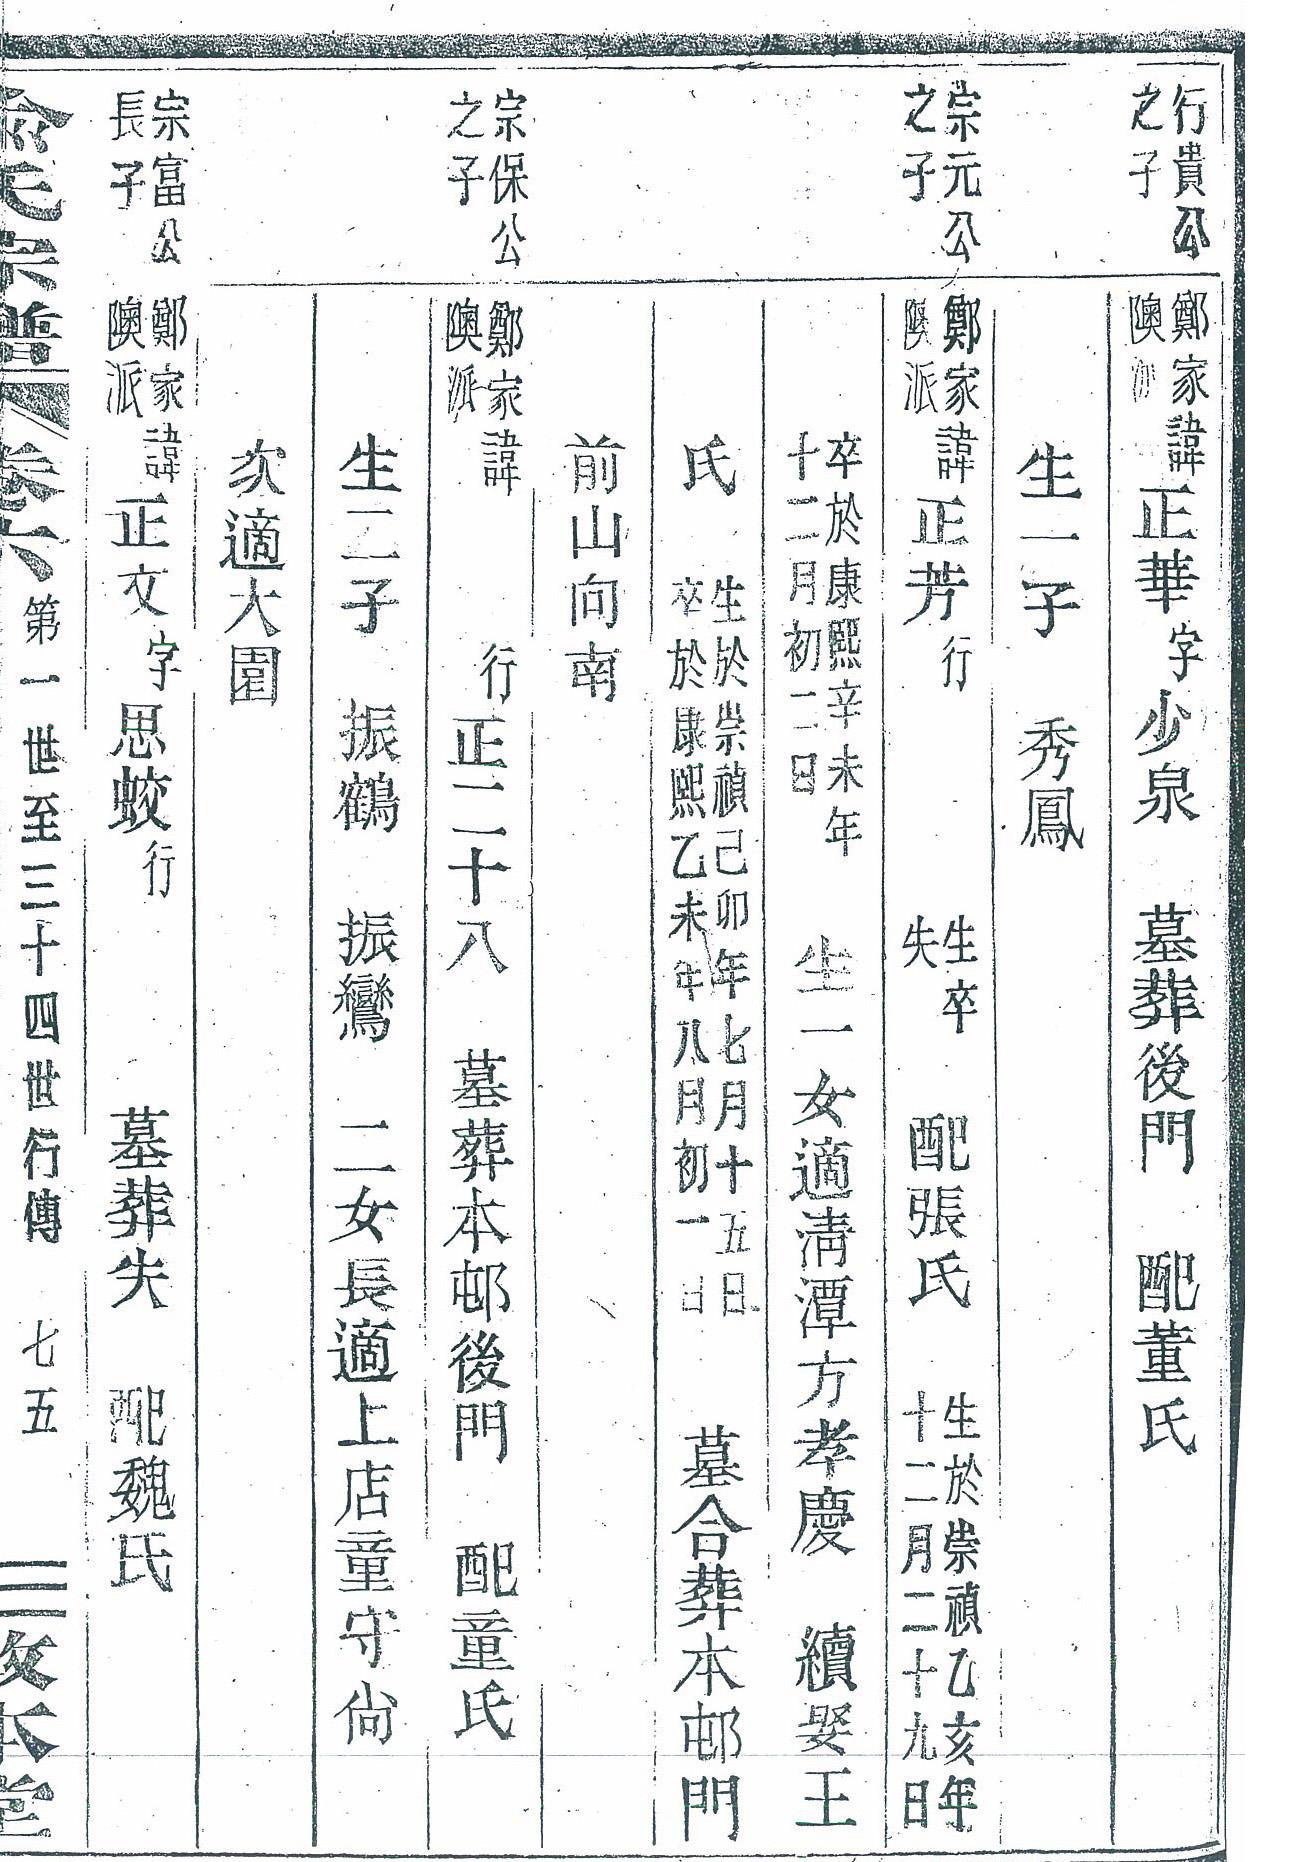 行貴公
之子
鄭家
隩派
諱正華字少泉　墓葬後門　配董氏
生一子　秀鳳
宗元公
之子
鄭家
隩派
諱正芳行　生卒
失　配張氏　生於崇禎乙亥年
十二月二十九日
卒於康熙辛未年
十二月初二日　生一女適清潭方孝慶　續娶王
氏　生於崇禎己卯年七月十五日
卒於康熙乙未年八月初一日　墓合葬本邨門
前山向南
宗保公
之子
鄭家
隩派
諱　行正二十八　墓葬本邨後門　配童氏
生二子　振鶴　振鸞　二女長適上店童守尚
次適大園
宗富公
長子
鄭家
隩派
諱正文字思蛟行　墓葬失　配魏氏
俞氏宗譜　卷六　第一世至三十四世行傳　七五　敦本堂